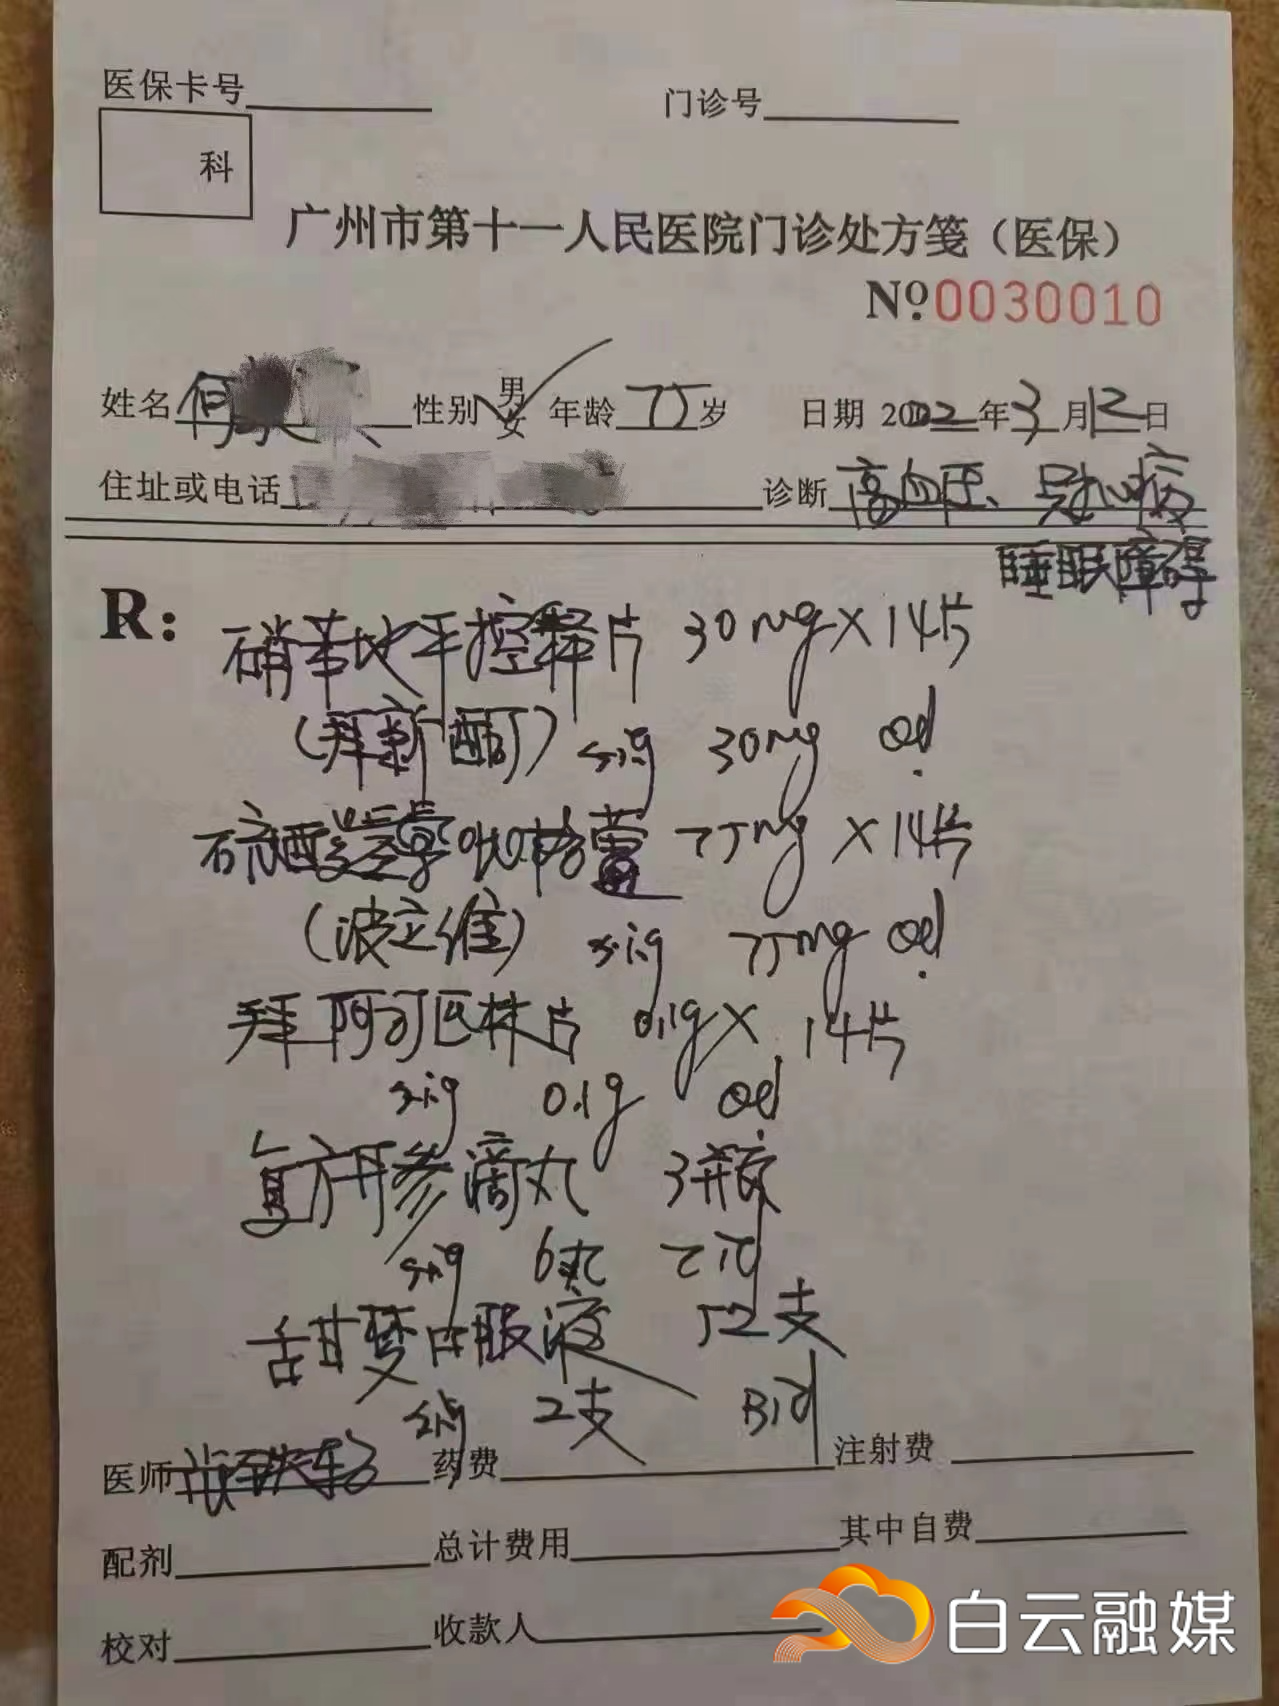 医保卡号 门诊号
科
广州市第十一人民医院门诊处方笺（医保）
Nº.0030010
姓名 何 性别 男 女 年龄 75 岁 日期 2022 年 3 月 12 日
住址或电话 诊断 高血压、冠心病
睡眠障碍
R: 硝苯地平控释片 30mg×14片
（拜新酮） sig 30mg qd.
硫酸氢氯吡格雷 75mg×14片
（波立维） sig 75mg qd.
拜阿司匹林片 0.1g×14片
sig 0.1g qd
复方丹参滴丸 3瓶
sig 6丸 tid
甜梦口服液 52支
sig 2支 Bid
医师 药费 注射费
配剂 总计费用 其中自费
校对 收款人
白云融媒